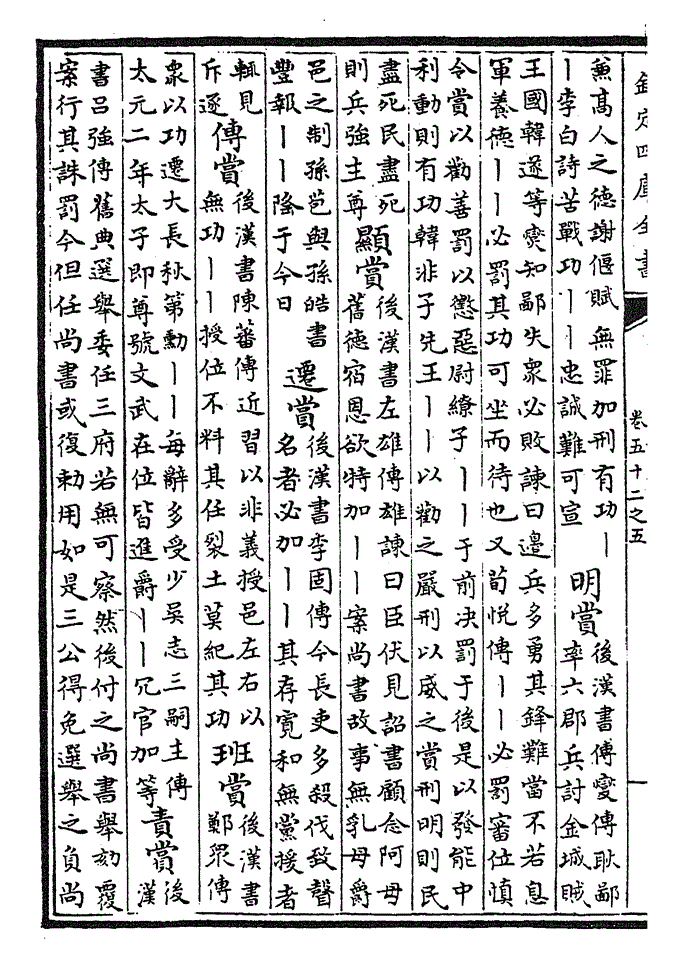 欽定四庫全書
卷五十二之五
兼高人之德謝偃賦無罪加刑有功丨
丨李白詩苦戰功丨丨忠誠難可宣
明賞
後漢書傅燮傳耿鄙
率六郡兵討金城賊
王國韓遂等燮知鄙失衆必敗諫曰邊兵多勇其鋒難當不若息
軍養德丨丨必罰其功可坐而待也又荀悦傳丨丨必罰審位慎
令賞以勸善罰以懲惡尉繚子丨丨于前决罰于後是以發能中
利動則有功韓非子先王丨丨以勸之嚴刑以威之賞刑明則民
盡死民盡死
則兵強主尊
顯賞
後漢書左雄傳雄諫曰臣伏見詔書顧念阿母
舊德宿恩欲特加丨丨案尚書故事無乳母爵
邑之制孫芭與孫皓書
豐報丨丨隆于今日
遷賞
後漢書李固傳今長吏多殺伐致聲
名者必加丨丨其存寛和無黨援者
輒見
斥逐
傳賞
後漢書陳蕃傳近習以非義授邑左右以
無功丨丨授位不料其任裂土莫紀其功
班賞
後漢書
鄭衆傳
衆以功遷大長秋第勳丨丨每辭多受少吳志三嗣主傳
太元二年太子即尊號文武在位皆進爵丨丨冗官加等
責賞
後
漢
書吕強傳舊典選舉委任三府若無可察然後付之尚書舉劾覆
案行其誅罰今但任尚書或復勅用如是三公得免選舉之負尚